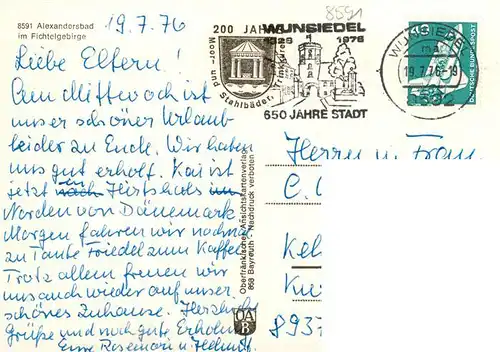 8591 Alexandersbad
im Fichtelgebirge
19.7.76
Liebe Eltern!
Am Mittwoch ist
unser schöner Urlaub
leider zu Ende. Wir haben
uns gut erholt. Kai ist
jetzt in Hirtshals
Norden von Dänemark
Morgen fahren wir nochmal
zu Tante Friedel zum Kaffee
Trotz allem freuen wir
uns auch wieder auf unser
schönes Zuhause. Herzliche
Grüße und noch gute Erholung
Eure Rosemarie u. Helmut
Oberfränkischer Ansichtskartenverlag
858 Bayreuth - Nachdruck verboten
OA
B
8591
200 JAHRE
Moor- und Stahlbäder
WUNSIEDEL
1326 1976
650 JAHRE STADT
WUNSIEDEL
19.7.76-18
8592
DEUTSCHE BUNDESPOST
Herrn u. Frau
C.
Kel
893